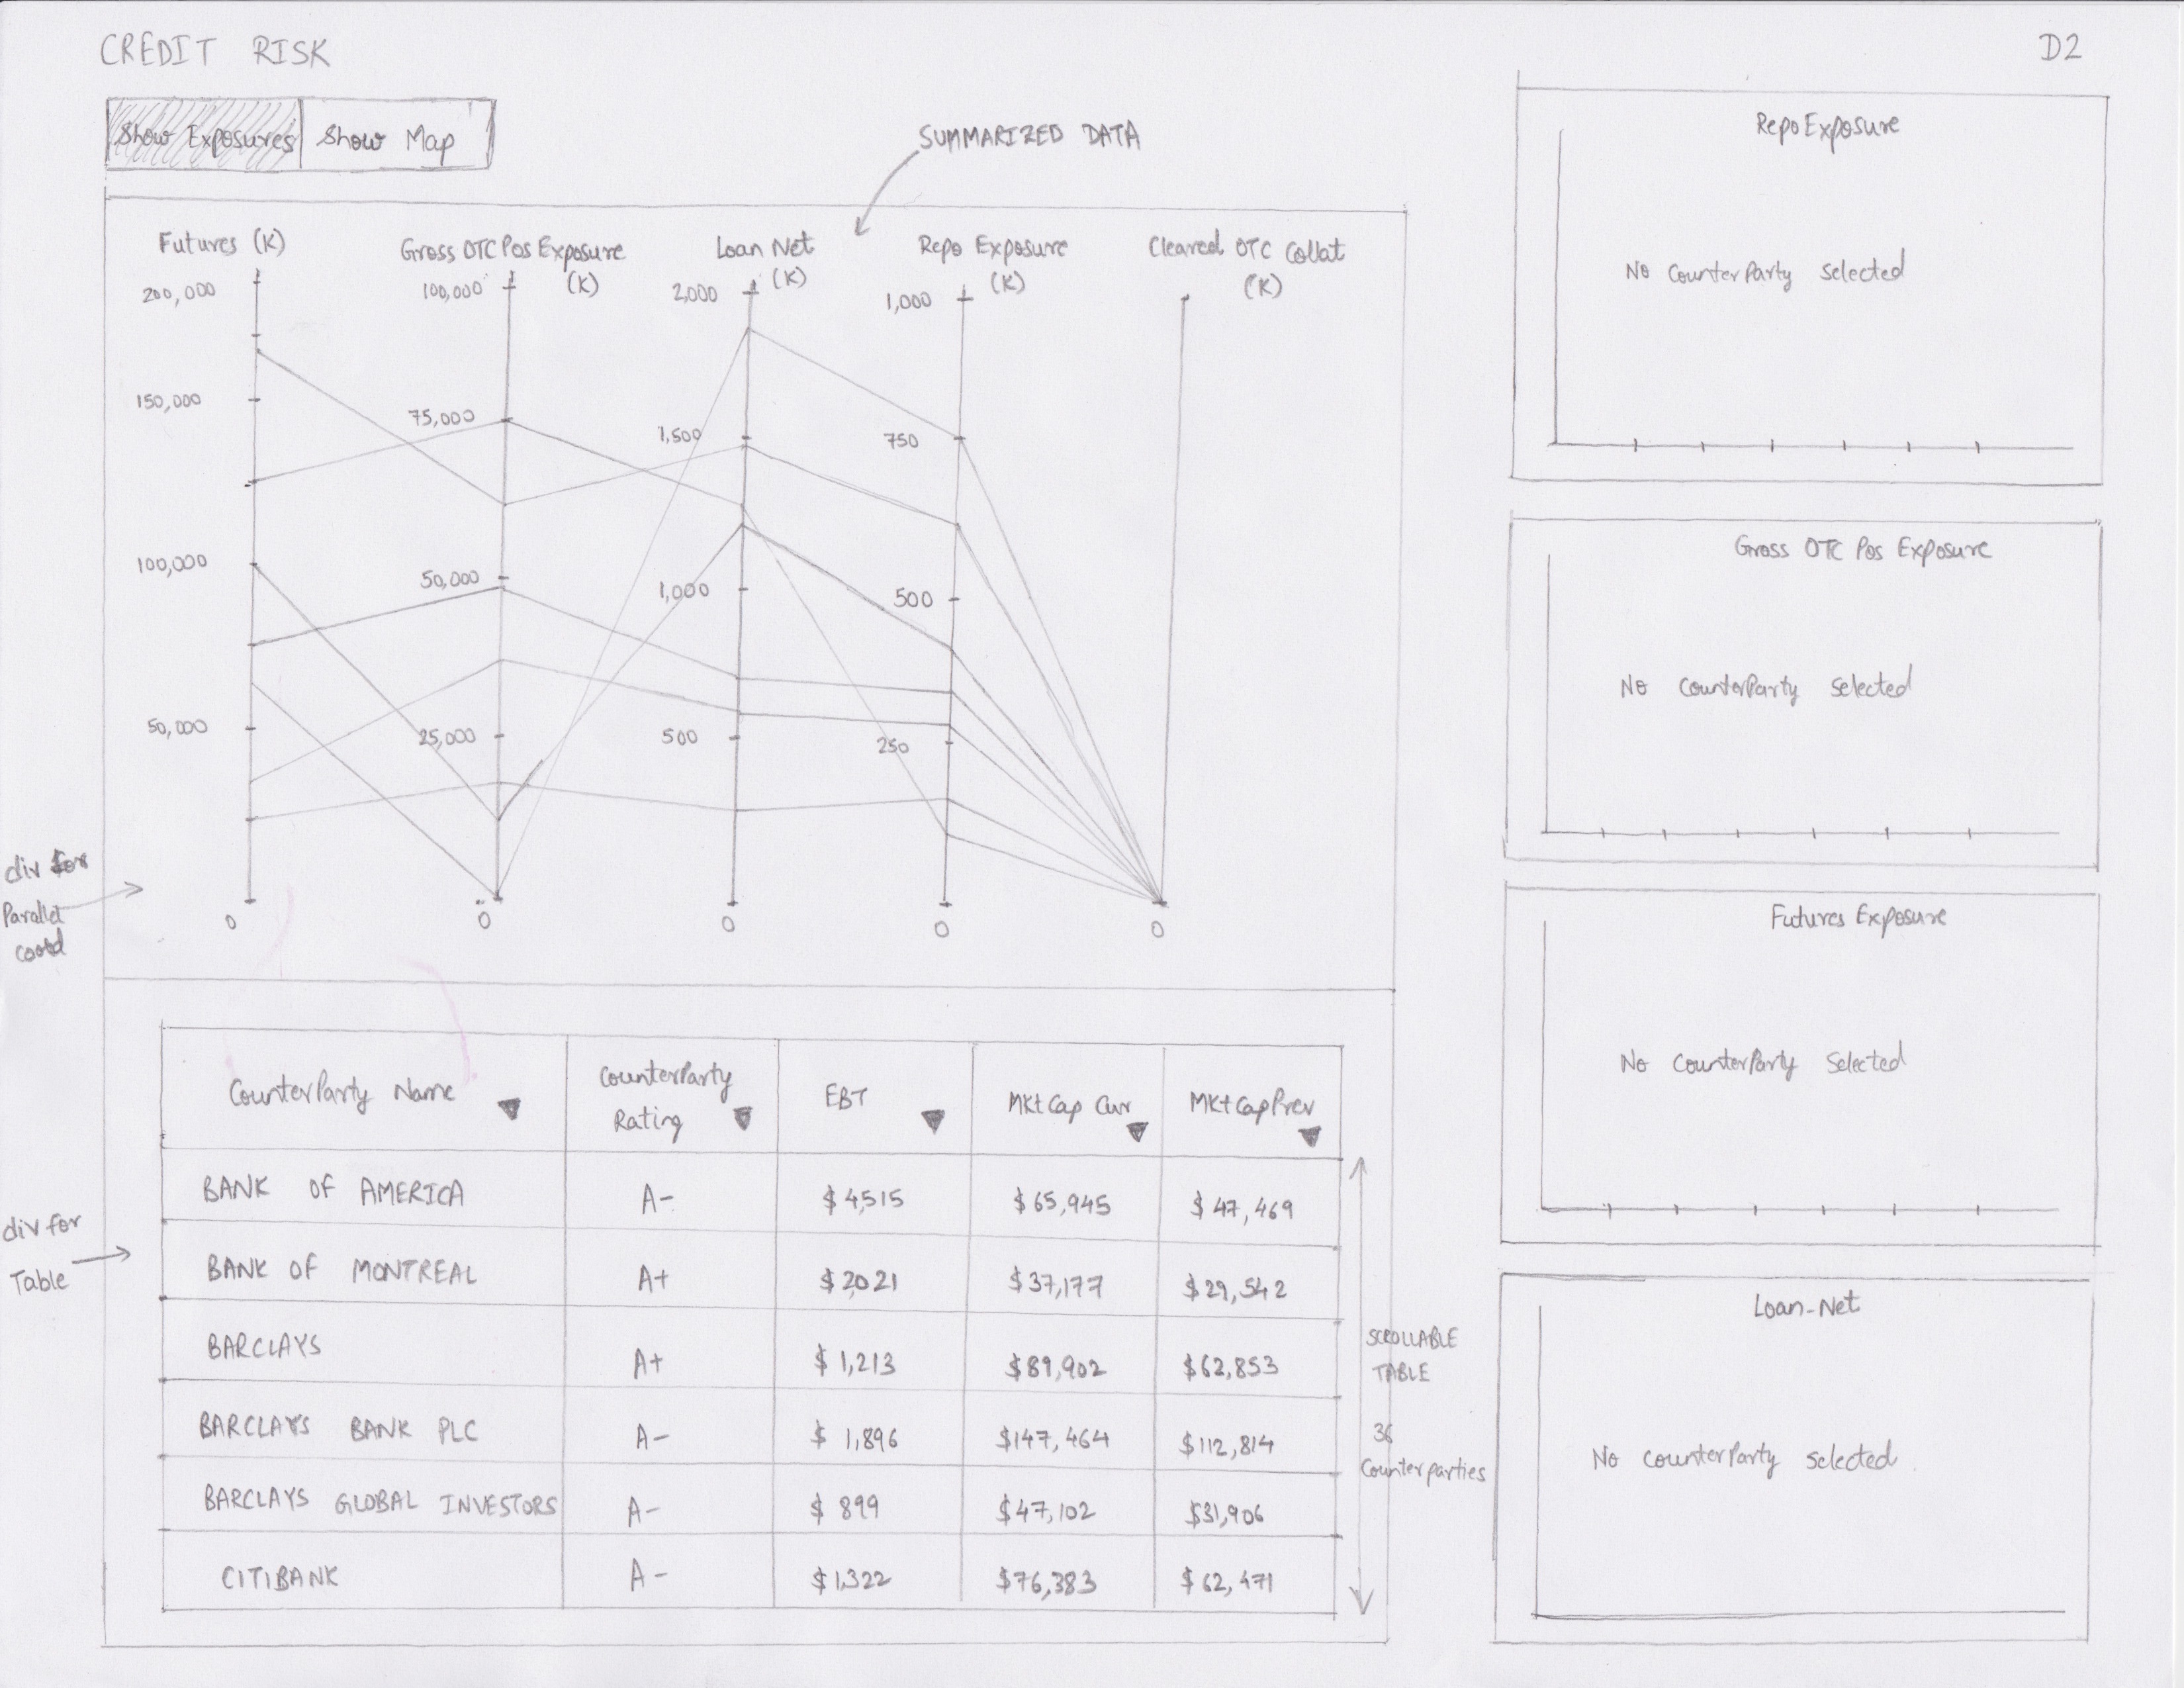 CREDIT RISK
D2
Show Exposures
Show Map
SUMMARIZED DATA
Futures (K)
Gross OTC Pos Exposure
(K)
Loan Net
(K)
Repo Exposure
(K)
Cleared OTC Collat
(K)
200,000
150,000
100,000
50,000
0
100,000
75,000
50,000
25,000
0
2,000
1,500
1,000
500
0
1,000
750
500
250
0
0
div for
Parallel
coord
CounterParty Name
CounterParty
Rating
EBT
MKt Cap Cur
MKt Cap Prev
BANK OF AMERICA
A-
$ 4,515
$ 65,945
$ 47,469
BANK OF MONTREAL
A+
$ 2,021
$ 37,177
$ 29,542
BARCLAYS
A+
$ 1,213
$ 89,902
$ 62,853
BARCLAYS BANK PLC
A-
$ 1,896
$147,464
$ 112,814
BARCLAYS GLOBAL INVESTORS
A-
$ 899
$ 47,102
$31,906
CITIBANK
A-
$ 1,322
$76,383
$ 62,471
div for
Table
SCROLLABLE
TABLE
36
Counterparties
Repo Exposure
No CounterParty Selected
Gross OTC Pos Exposure
No CounterParty Selected
Futures Exposure
No CounterParty Selected
Loan-Net
No counterParty selected